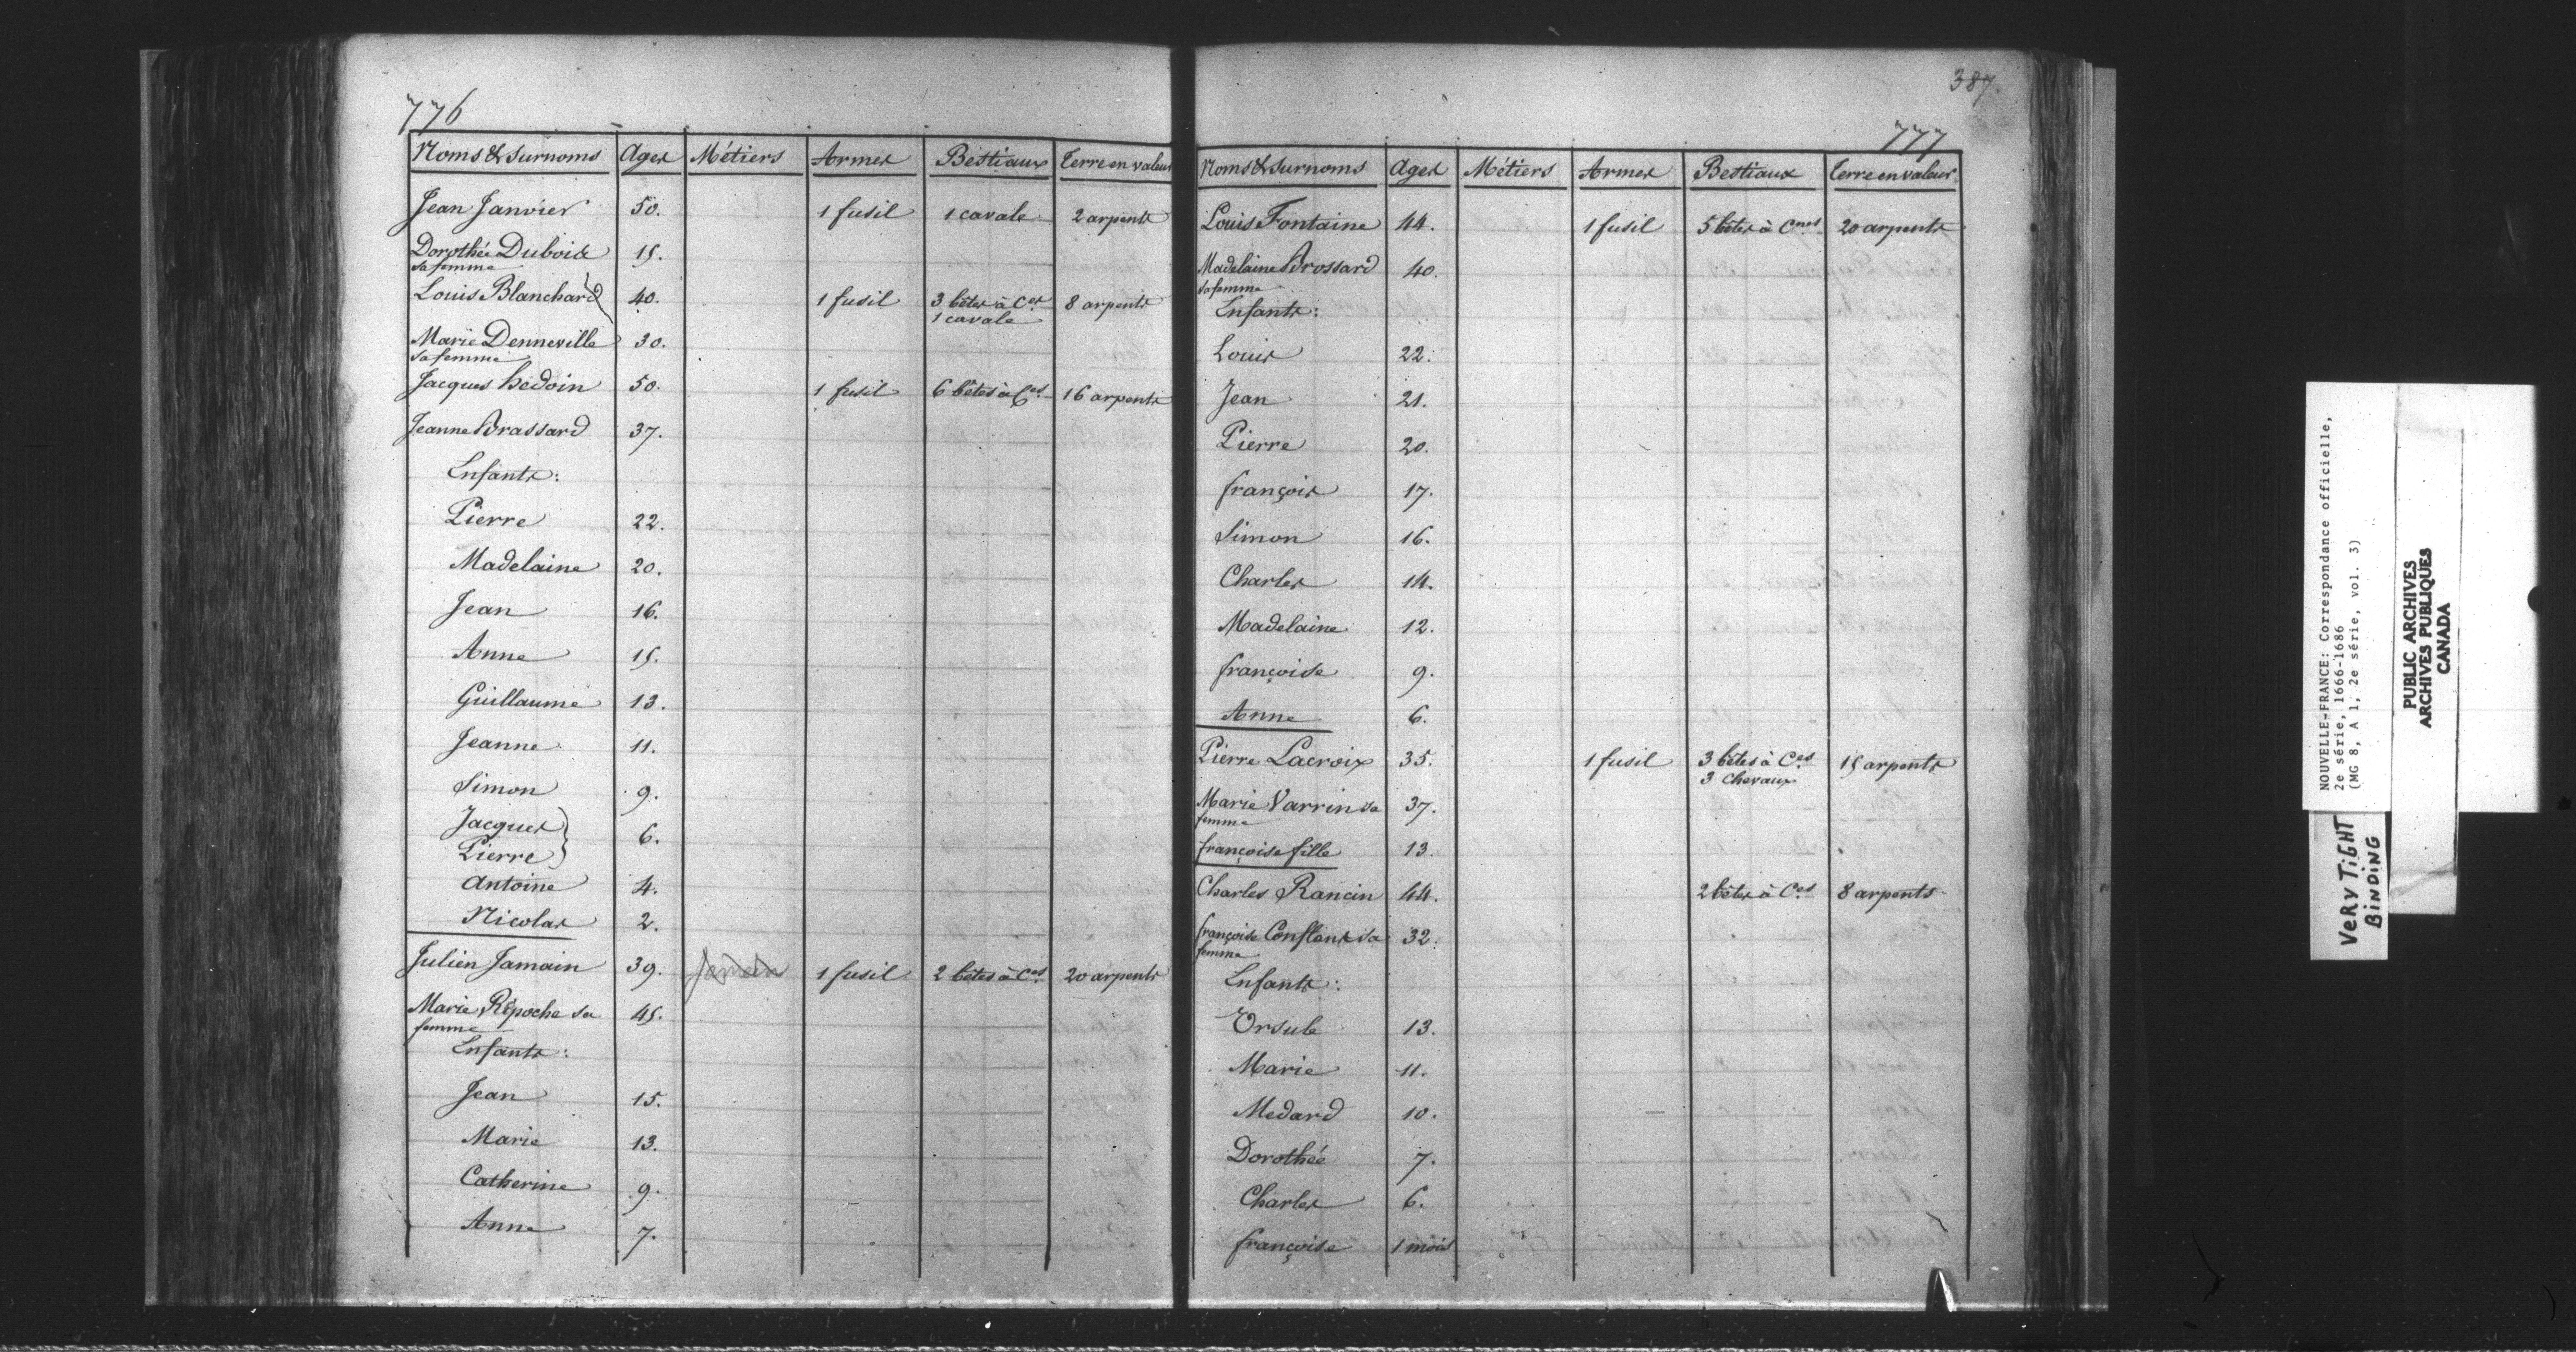 776
Noms & Surnoms Ages Métiers Armes Bestiaux Terre en valeur
Jean Janvier 50. 1 fusil 1 cavale 2 arpents
Dorothée Dubois 15.
sa femme
Louis Blanchard 40. 1 fusil 3 bêtes à Ces 8 arpents
1 cavale
Marie Denneville 30.
sa femme
Jacques hédoin 50. 1 fusil 6 bêtes à Ces 16 arpents
Jeanne Brassard 37.
Enfants:
Pierre 22.
Madelaine 20.
Jean 16.
Anne 15.
Guillaume 13.
Jeanne 11.
Simon 9.
Jacques
Pierre } 6.
Antoine 4.
Nicolas 2.
Julien Jamain 39. 1 fusil 2 bêtes à Ces 20 arpents
Marie Répoche sa 45.
femme
Enfants:
Jean 15.
Marie 13.
Catherine 9.
Anne 7.
387.
777
Noms & Surnoms Ages Métiers Armes Bestiaux Terre en valeur
Louis Fontaine 44. 1 fusil 5 bêtes à Cnes 20 arpents
Madelaine Brossard 40.
sa femme
Enfants:
Louis 22.
Jean 21.
Pierre 20.
françois 17.
Simon 16.
Charles 14.
Madelaine 12.
françoise 9.
Anne 6.
Pierre Lacroix 35. 1 fusil 3 bêtes à Ces 15 arpents
3 chevaux
Marie Varrin sa 37.
femme
françoise fille 13.
Charles Rancin 44. 2 bêtes à Ces 8 arpents
françoise Conflans sa 32.
femme
Enfants:
Ursule 13.
Marie 11.
Medard 10.
Dorothée 7.
Charles 6.
françoise 1 mois
NOUVELLE-FRANCE: Correspondance officielle,
2e série, 1666-1686
(MG 8, A 1, 2e série, vol. 3)
PUBLIC ARCHIVES
ARCHIVES PUBLIQUES
CANADA
VERY TiGHT
BiNDiNG